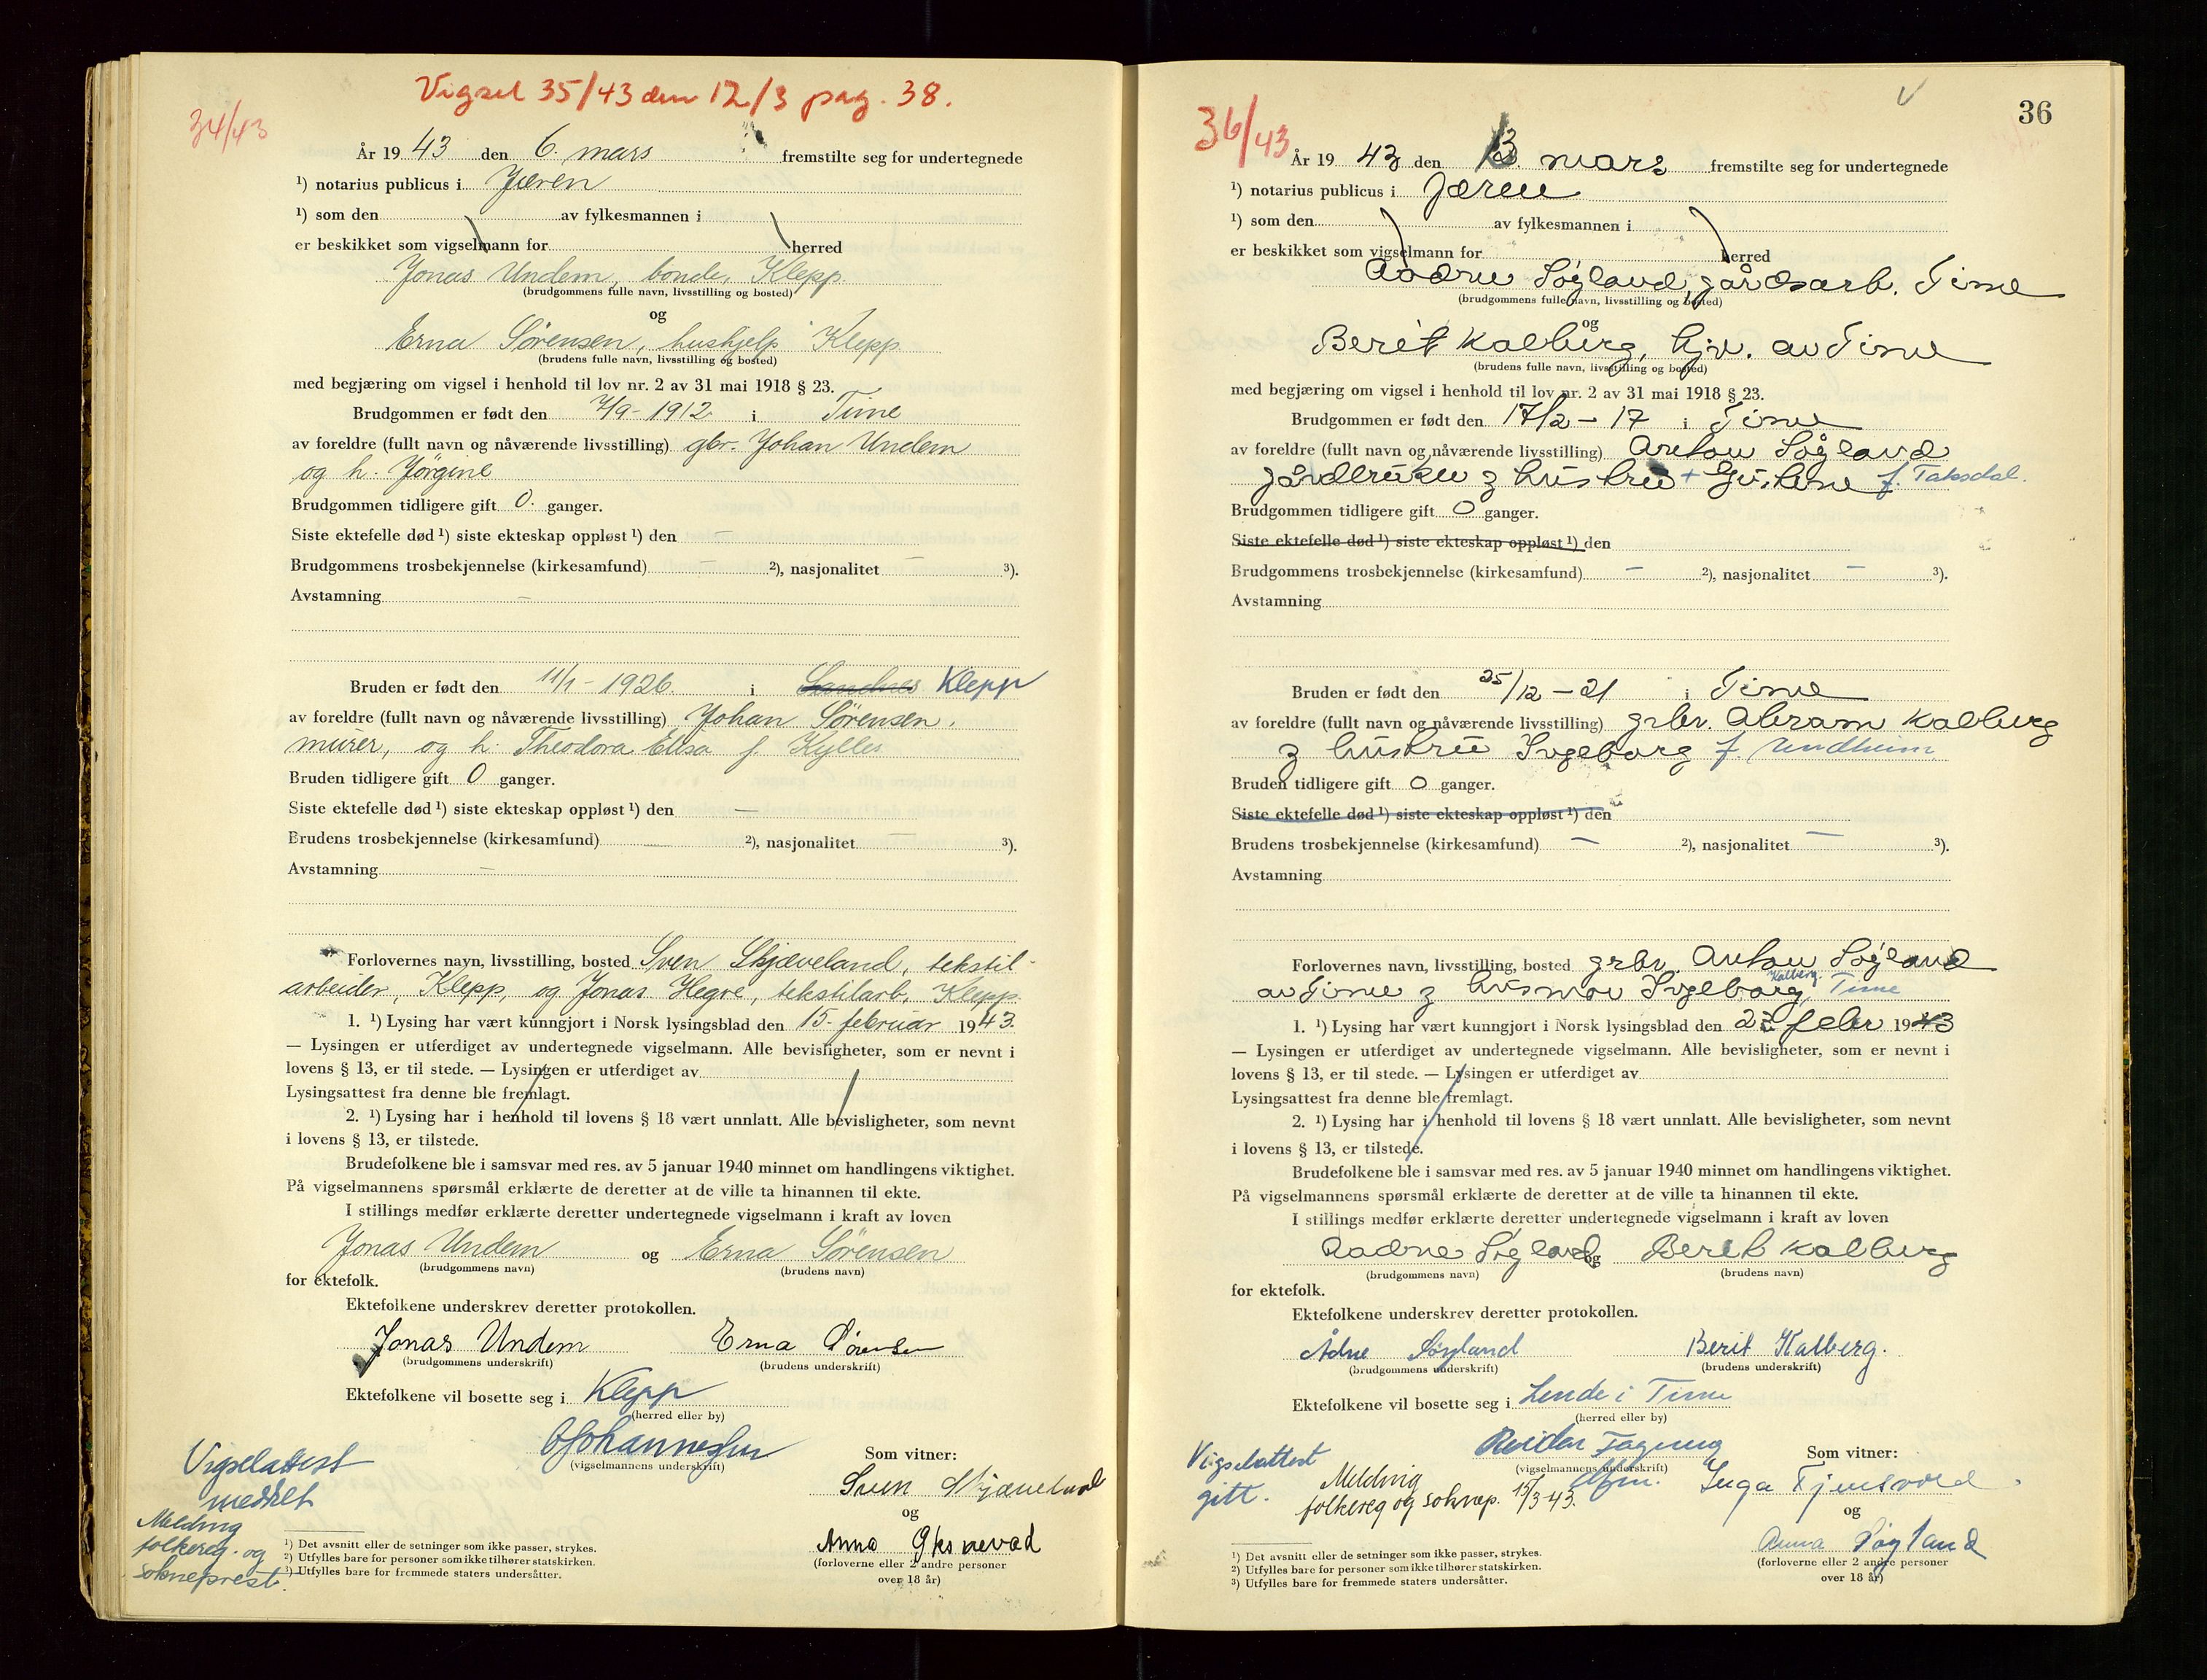 Vigsel 35/43 den 12/3 pag. 38.
34/43
År 1943 den 6. mars fremstilte seg for undertegnede
¹) notarius publicus i Jæren
¹) som den av fylkesmannen i
er beskikket som vigselmann for herred
Jonas Undem, bonde, Klepp.
(brudgommens fulle navn, livsstilling og bosted)
og
Erna Sörensen, hushjelp Klepp
(brudens fulle navn, livsstilling og bosted)
med begjæring om vigsel i henhold til lov nr. 2 av 31 mai 1918 § 23.
Brudgommen er født den 7/9-1912. i Time
av foreldre (fullt navn og nåværende livsstilling) gbr. Johan Undem
og h. Jörgine
Brudgommen tidligere gift 0. ganger.
Siste ektefelle død ¹) siste ekteskap oppløst ¹) den —
Brudgommens trosbekjennelse (kirkesamfund) — ²), nasjonalitet — ³).
Avstamning —
Bruden er født den 11/1-1926. i Sandnes Klepp
av foreldre (fullt navn og nåværende livsstilling) Johan Sörensen,
murer, og h. Theodora Elisa f. Kylles
Bruden tidligere gift 0 ganger.
Siste ektefelle død ¹) siste ekteskap oppløst ¹) den —
Brudens trosbekjennelse (kirkesamfund) — ²), nasjonalitet — ³).
Avstamning —
Forlovernes navn, livsstilling, bosted Sven Skjæveland, tekstil-
arbeider, Klepp, og Jonas Hegre, tekstilarb, Klepp.
1. ¹) Lysing har vært kunngjort i Norsk lysingsblad den 15. februar 1943.
— Lysingen er utferdiget av undertegnede vigselmann. Alle bevisligheter, som er nevnt i
lovens § 13, er til stede. — Lysingen er utferdiget av
Lysingsattest fra denne ble fremlagt.
2. ¹) Lysing har i henhold til lovens § 18 vært unnlatt. Alle bevisligheter, som nevnt
i lovens § 13, er tilstede.
Brudefolkene ble i samsvar med res. av 5 januar 1940 minnet om handlingens viktighet.
På vigselmannens spørsmål erklærte de deretter at de ville ta hinannen til ekte.
I stillings medfør erklærte deretter undertegnede vigselmann i kraft av loven
Jonas Undem og Erna Sörensen
(brudgommens navn) (brudens navn)
for ektefolk.
Ektefolkene underskrev deretter protokollen.
Jonas Undem Erna Sörensen
(brudgommens underskrift) (brudens underskrift)
Ektefolkene vil bosette seg i Klepp
(herred eller by)
(vigselmannens underskrift)
Som vitner:
Sven Skjæveland
og
Anna Öksnevad
(forloverne eller 2 andre personer
over 18 år)
Vigselattest
meddelt
Melding
folkereg. og
sokneprest.
¹) Det avsnitt eller de setninger som ikke passer, strykes.
²) Utfylles bare for personer som ikke tilhører statskirken.
³) Utfylles bare for fremmede staters undersåtter.
36
36/43
År 1943 den 13. mars fremstilte seg for undertegnede
¹) notarius publicus i Jæren
¹) som den av fylkesmannen i
er beskikket som vigselmann for herred
Aadne Söyland, gårdsarb. Time
(brudgommens fulle navn, livsstilling og bosted)
og
Berit Kalberg, hjv. av Time
(brudens fulle navn, livsstilling og bosted)
med begjæring om vigsel i henhold til lov nr. 2 av 31 mai 1918 § 23.
Brudgommen er født den 17/2-17 i Time
av foreldre (fullt navn og nåværende livsstilling) Anton Söyland
gårdbruker & hustru + Gustine f. Taksdal.
Brudgommen tidligere gift 0 ganger.
Siste ektefelle død ¹) siste ekteskap oppløst ¹) den
Brudgommens trosbekjennelse (kirkesamfund) — ²), nasjonalitet — ³).
Avstamning
Bruden er født den 25/12-21 i Time
av foreldre (fullt navn og nåværende livsstilling) grbr. Abram Kalberg
& hustru Ingeborg f. Undheim
Bruden tidligere gift 0 ganger.
Siste ektefelle død ¹) siste ekteskap oppløst ¹) den
Brudens trosbekjennelse (kirkesamfund) — ²), nasjonalitet — ³).
Avstamning
Forlovernes navn, livsstilling, bosted grbr. Anton Söyland
av Time & husmor Ingeborg Kalberg, Time
1. ¹) Lysing har vært kunngjort i Norsk lysingsblad den febr 1943
— Lysingen er utferdiget av undertegnede vigselmann. Alle bevisligheter, som er nevnt i
lovens § 13, er til stede. — Lysingen er utferdiget av
Lysingsattest fra denne ble fremlagt.
2. ¹) Lysing har i henhold til lovens § 18 vært unnlatt. Alle bevisligheter, som nevnt
i lovens § 13, er tilstede.
Brudefolkene ble i samsvar med res. av 5 januar 1940 minnet om handlingens viktighet.
På vigselmannens spørsmål erklærte de deretter at de ville ta hinannen til ekte.
I stillings medfør erklærte deretter undertegnede vigselmann i kraft av loven
Aadne Söyland og Berit Kalberg
(brudgommens navn) (brudens navn)
for ektefolk.
Ektefolkene underskrev deretter protokollen.
Ådne Söyland Berit Kalberg.
(brudgommens underskrift) (brudens underskrift)
Ektefolkene vil bosette seg i Lende i Time
(herred eller by)
Reidar
(vigselmannens underskrift)
Som vitner:
Inga
og
Anna Söyland
(forloverne eller 2 andre personer
over 18 år)
Vigselattest
gitt.
Melding
folkereg og soknepr. 15/3-43.
¹) Det avsnitt eller de setninger som ikke passer, strykes.
²) Utfylles bare for personer som ikke tilhører statskirken.
³) Utfylles bare for fremmede staters undersåtter.